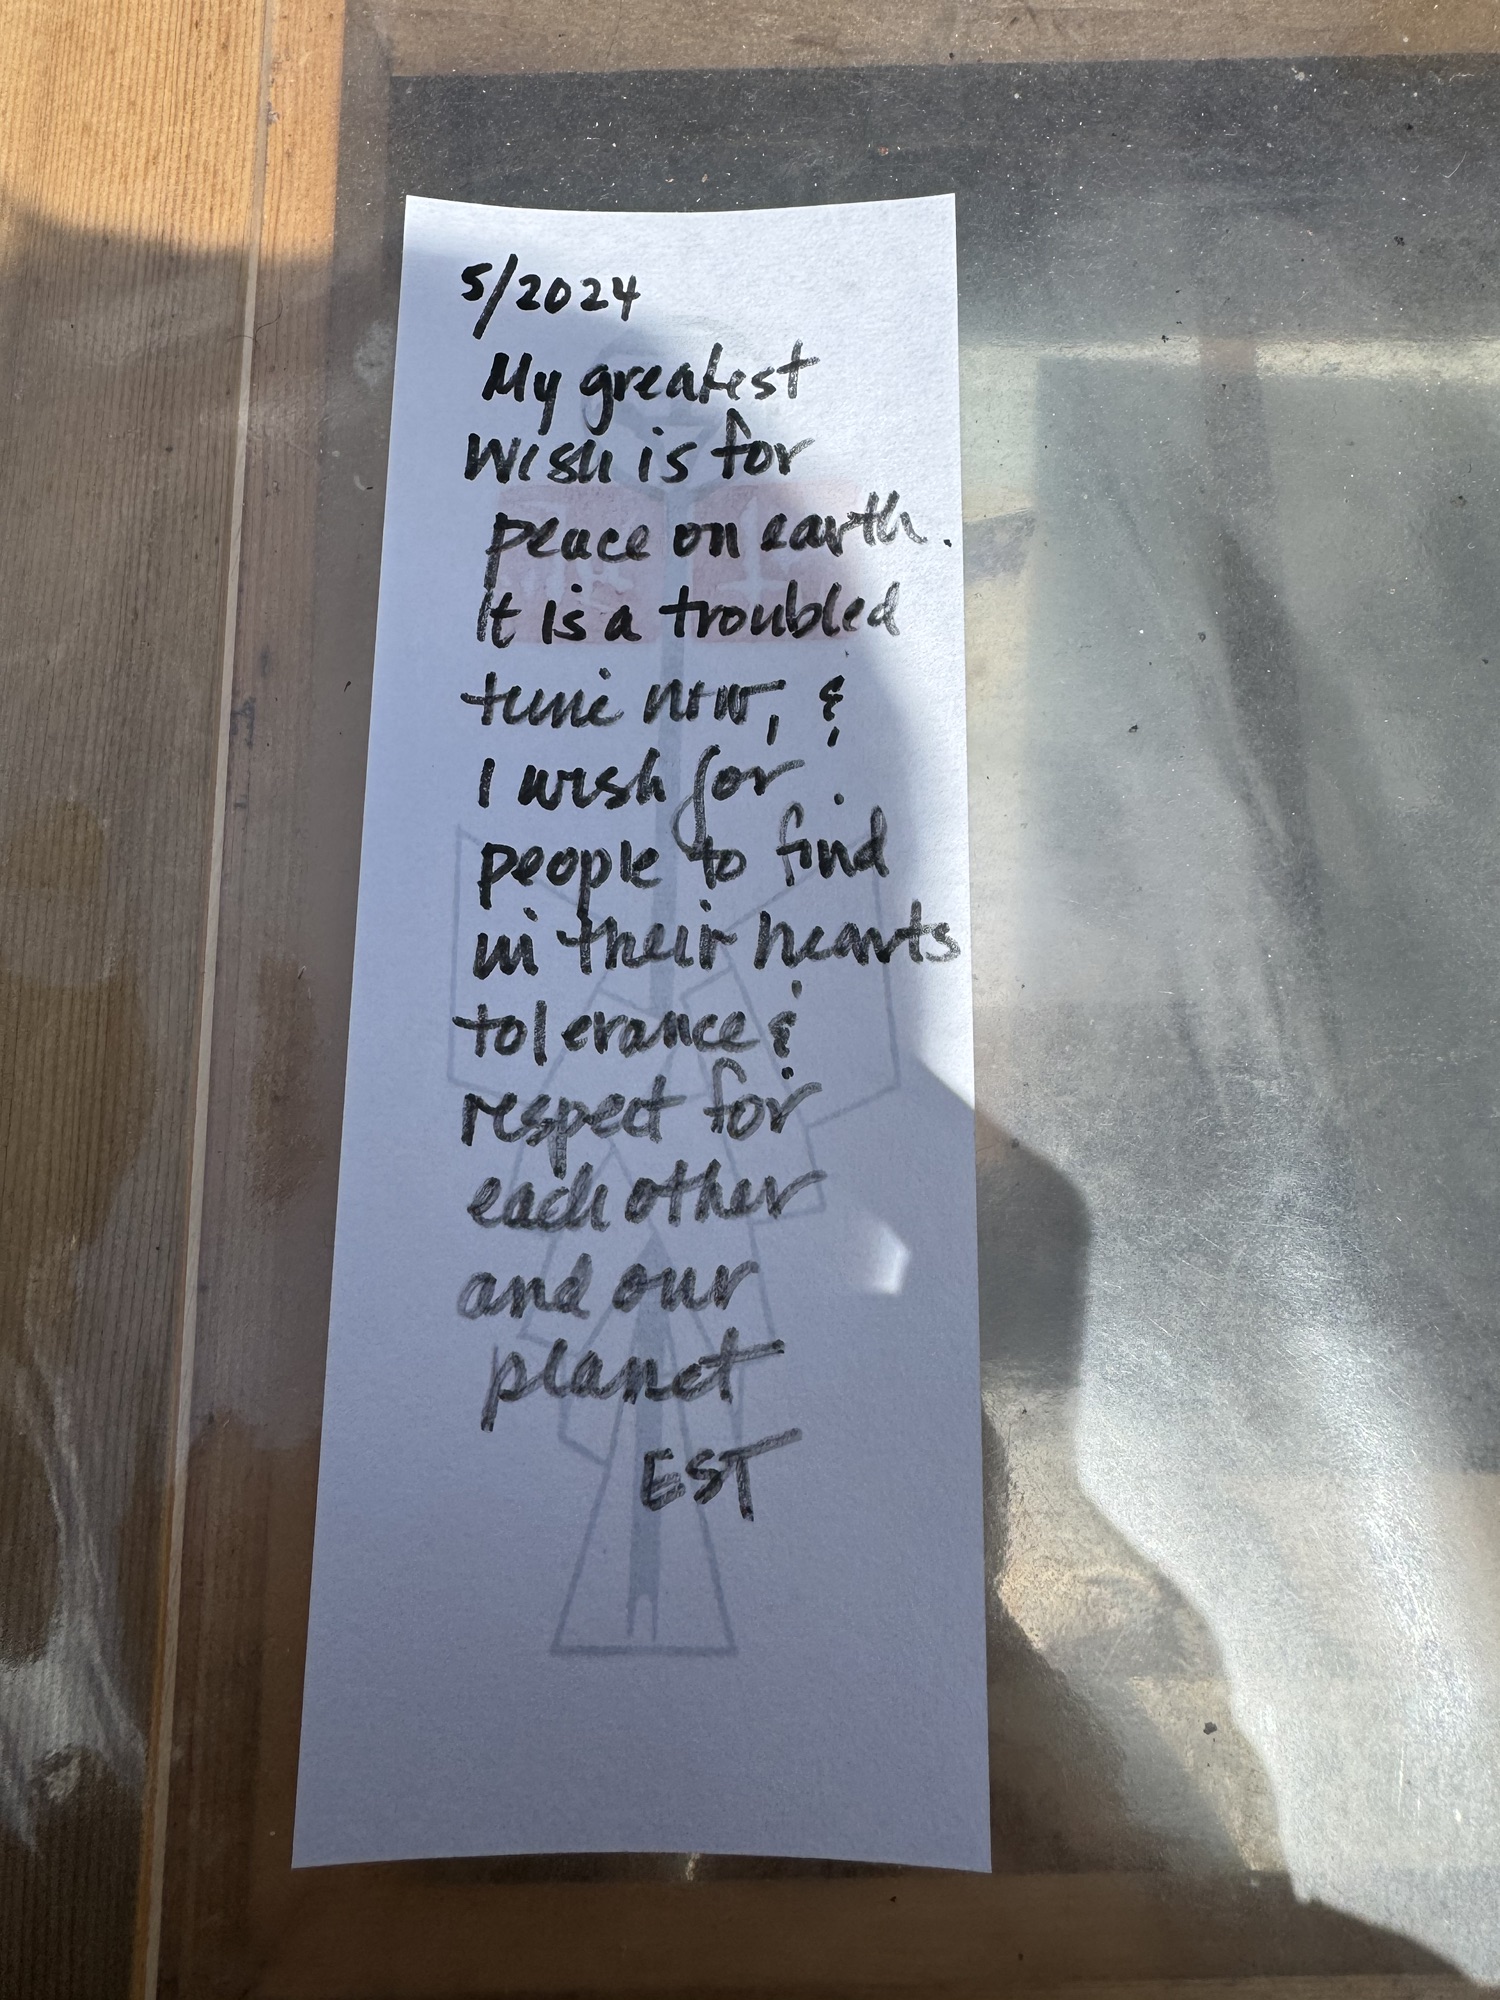 5/2024
My greatest
wish is for
peace on earth.
It is a troubled
time now, &
I wish for
people to find
in their hearts
tolerance &
respect for
each other
and our
planet
EST